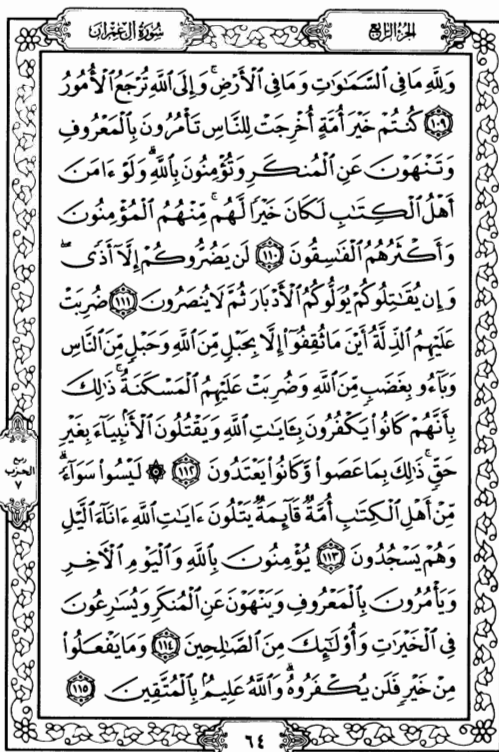 الجزء الرابع
سورة آل عمران
وَلِلَّهِ مَا فِي السَّمَاوَاتِ وَمَا فِي الْأَرْضِ ۚ وَإِلَى اللَّهِ تُرْجَعُ الْأُمُورُ
﴿١٠٩﴾ كُنتُمْ خَيْرَ أُمَّةٍ أُخْرِجَتْ لِلنَّاسِ تَأْمُرُونَ بِالْمَعْرُوفِ
وَتَنْهَوْنَ عَنِ الْمُنكَرِ وَتُؤْمِنُونَ بِاللَّهِ ۗ وَلَوْ ءَامَنَ
أَهْلُ الْكِتَابِ لَكَانَ خَيْرًا لَّهُم ۚ مِّنْهُمُ الْمُؤْمِنُونَ
وَأَكْثَرُهُمُ الْفَاسِقُونَ ﴿١١٠﴾ لَن يَضُرُّوكُمْ إِلَّا أَذًى ۖ
وَإِن يُقَاتِلُوكُمْ يُوَلُّوكُمُ الْأَدْبَارَ ثُمَّ لَا يُنصَرُونَ ﴿١١١﴾ ضُرِبَتْ
عَلَيْهِمُ الذِّلَّةُ أَيْنَ مَا ثُقِفُوا إِلَّا بِحَبْلٍ مِّنَ اللَّهِ وَحَبْلٍ مِّنَ النَّاسِ
وَبَاءُو بِغَضَبٍ مِّنَ اللَّهِ وَضُرِبَتْ عَلَيْهِمُ الْمَسْكَنَةُ ۚ ذَٰلِكَ
بِأَنَّهُمْ كَانُوا يَكْفُرُونَ بِـَٔايَاتِ اللَّهِ وَيَقْتُلُونَ الْأَنبِيَاءَ بِغَيْرِ
حَقٍّ ۚ ذَٰلِكَ بِمَا عَصَوا وَّكَانُوا يَعْتَدُونَ ﴿١١٢﴾ ۞ لَيْسُوا سَوَاءً ۗ
مِّنْ أَهْلِ الْكِتَابِ أُمَّةٌ قَائِمَةٌ يَتْلُونَ ءَايَاتِ اللَّهِ ءَانَاءَ الَّيْلِ
وَهُمْ يَسْجُدُونَ ﴿١١٣﴾ يُؤْمِنُونَ بِاللَّهِ وَالْيَوْمِ الْآخِرِ
وَيَأْمُرُونَ بِالْمَعْرُوفِ وَيَنْهَوْنَ عَنِ الْمُنكَرِ وَيُسَارِعُونَ
فِي الْخَيْرَاتِ وَأُولَٰئِكَ مِنَ الصَّالِحِينَ ﴿١١٤﴾ وَمَا يَفْعَلُوا
مِنْ خَيْرٍ فَلَن يُكْفَرُوهُ ۗ وَاللَّهُ عَلِيمٌ بِالْمُتَّقِينَ ﴿١١٥﴾
ربع
الحزب
٧
٦٤